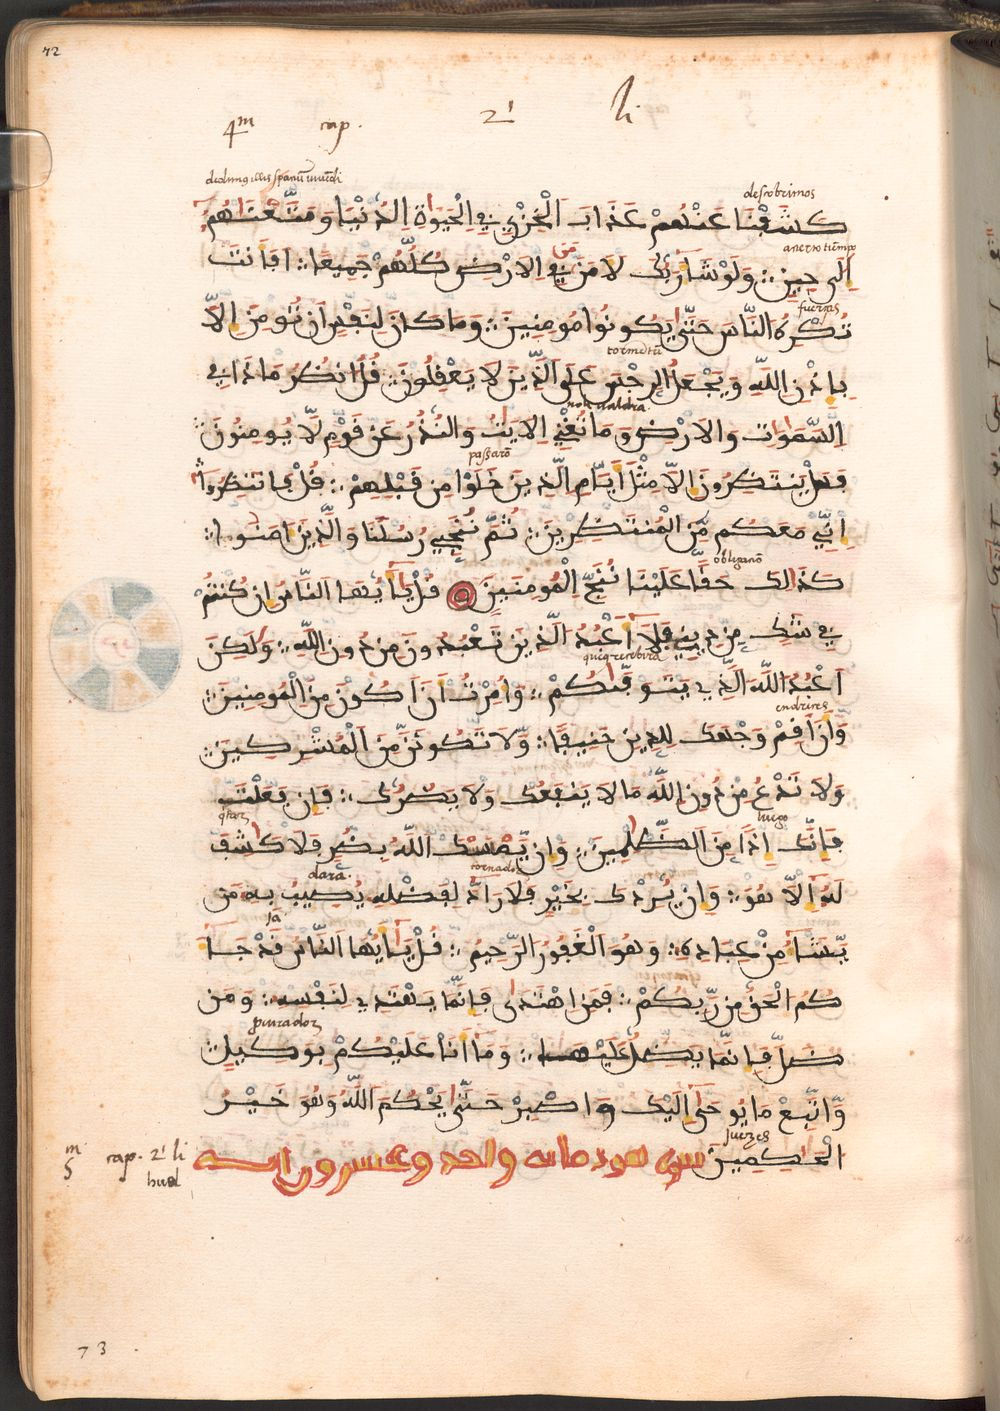 72
4m cap. 2' li
dedimus illis spatiū
descobrimos
كَشَفْنَا عَنْهُمْ عَذَابَ الْخِزْيِ فِي الْحَيَوٰةِ الدُّنْيَا وَمَتَّعْنَٰهُمُ
إِلَىٰ حِينٍ ∴ وَلَوْ شَا رَبُّكَ لَامَنَ مَن فِي الْارْضِ كُلُّهُمْ جَمِيعًا ∴ افَانتَ
fuerças
تُكْرِهُ النَّاسَ حَتَّىٰ يَكُونُوا مُومِنِينَ ∴ وَمَا كَانَ لِنَفْسٍ ان تُومِنَ الَّا
بِاذْنِ اللَّهِ وَيَجْعَلُ الرِّجْسَ عَلَى الَّذِينَ لَا يَعْقِلُونَ ∴ قُلُ انظُرُ مَاذَا فِي
السَّمَٰوَٰتِ وَالْارْضِ وَمَا تُغْنِي الْايَٰتُ وَالنُّذُرُ عَن قَوْمٍ لَّا يُومِنُونَ ∴
passarō
فَهَلْ يَنتَظِرُونَ الَّا مِثْلَ أَيَّامِ الَّذِينَ خَلَوْا مِن قَبْلِهِمْ ∴ قُلْ فَانتَظِرُوا
إِنِّي مَعَكُم مِّنَ الْمُنتَظِرِينَ ∴ ثُمَّ نُنَجِّي رُسُلَنَا وَالَّذِينَ امَنُوا ∴
obliganō
كَذَٰلِكَ حَقًّا عَلَيْنَا نُنَجِّ الْمُومِنِينَ قُلْ يَٰأَيُّهَا النَّاسُ ان كُنتُمْ
فِي شَكٍّ مِّن دِينِي فَلَا أَعْبُدُ الَّذِينَ تَعْبُدُونَ مِن دُونِ اللَّهِ ∴ وَلَٰكِنَ
que recebira
اعْبُدُ اللَّهَ الَّذِي يَتَوَفَّىٰكُمْ ∴ وَامِرْتُ انَ اكُونَ مِنَ الْمُومِنِينَ ∴
endrires
وَانَ اقِمْ وَجْهَكَ لِلدِّينِ حَنِيفًا ∴ وَلَا تَكُونَنَّ مِنَ الْمُشْرِكِينَ ∴
وَلَا تَدْعُ مِن دُونِ اللَّهِ مَا لَا يَنفَعُكَ وَلَا يَضُرُّكَ ∴ فَان فَعَلْتَ
luego
فَانَّكَ اذًا مِّنَ الظَّٰلِمِينَ ∴ وَان يَّمْسَسْكَ اللَّهُ بِضُرٍّ فَلَا كَٰشِفَ
tornador
لَهُ الَّا هُوَ ∴ وَان يُّرِدْكَ بِخَيْرٍ فَلَا رَادَّ لِفَضْلِهِ يُصِيبُ بِهِ مَن
dara
ja
يَّشَا مِنْ عِبَادِهِ ∴ وَهُوَ الْغَفُورُ الرَّحِيمُ ∴ قُلْ يَٰأَيُّهَا النَّاسُ قَدْ جَا
كُمُ الْحَقُّ مِن رَّبِّكُمْ ∴ فَمَنِ اهْتَدَىٰ فَانَّمَا يَهْتَدِي لِنَفْسِهِ ∴ وَمَن
purador
ضَلَّ فَانَّمَا يَضِلُّ عَلَيْهَا ∴ وَمَا أَنَا عَلَيْكُم بِوَكِيلٍ ∴
وَاتَّبِعْ مَا يُوحَىٰ إِلَيْكَ وَاصْبِرْ حَتَّىٰ يَحْكُمَ اللَّهُ وَهُوَ خَيْرُ
juezes
الْحَٰكِمِينَ سورة هود مايه واحد وعشرون ايه
5m cap. 2' li
hud
73